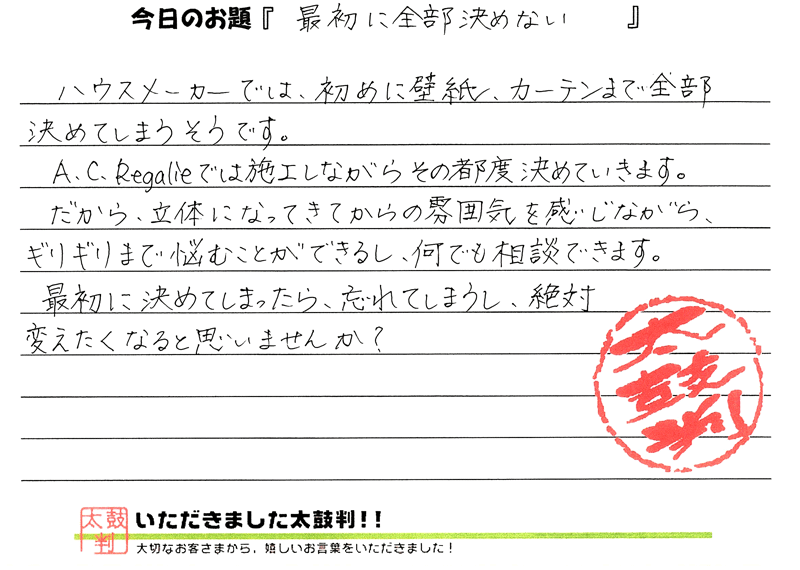 今日のお題『 最初に全部決めない 』
ハウスメーカーでは、初めに壁紙、カーテンまで全部
決めてしまうそうです。
A.C.Regalieでは施工しながらその都度決めていきます。
だから、立体になってきてからの雰囲気を感じながら、
ギリギリまで悩むことができるし、何でも相談できます。
最初に決めてしまったら、忘れてしまうし、絶対
変えたくなると思いませんか？
太鼓判
太鼓判
いただきました太鼓判！！
大切なお客さまから、嬉しいお言葉をいただきました！